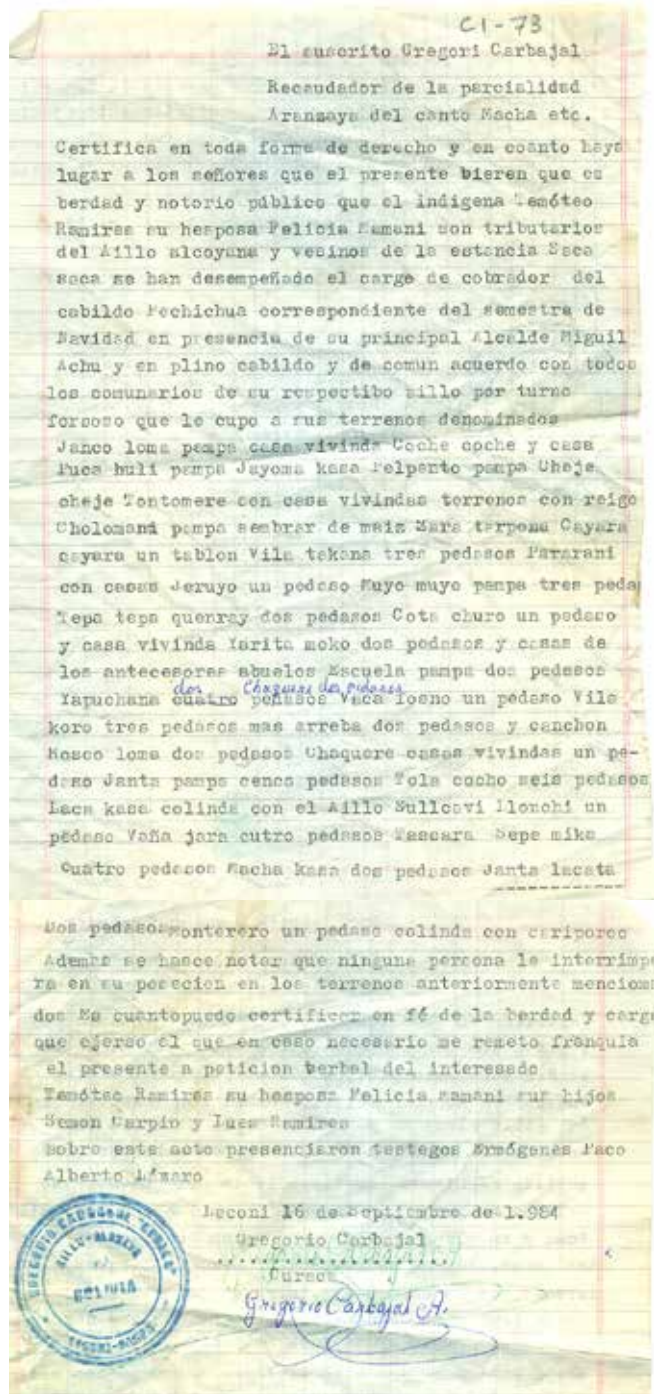 C1-73
El suscrito Gregori Carbajal
Recaudador de la parcialidad
Aransaya del canto Macha etc.
Certifica en toda forma de derecho y en coanto haya
lugar a los señores que el presente bieren que es
berdad y notorio público que el indigena Temóteo
Ramires su hesposa Felicia Mamani son tributarios
del Aillo alcoyana y vesinos de la estancia Saca
saca se han desempeñado el cargo de cobrador del
cabildo Pechichua correspondiente del semestra de
Navidad en presencia de su principal Alcalde Miguil
Achu y en plino cabildo y de comun acuerdo con todos
los comunarios de su respectibo aillo por turno
forsoso que le cupo a sus terrenos denominados
Janco loma pampa casa vivinda Coche coche y casa
Puca huli pampa Jayoma kasa Pelpento pampa Cheje
cheje Tontomere con casa vivindas terrenos con reigo
Cholomani pampa sembrar de maiz Sara tarpona Cayara
cayara un tablon Vila takana tres pedasos Pararani
con casas Jeruyo un pedaso Muyo muyo pampa tres peda
Tepa tepa quenray dos pedasos Cota churo un pedaso
y casa vivinda Yarita moko dos pedasos y casas de
los antecesoras abuelos Escuela pampa dos pedasos
dos Chaquere dos pedasos
Yapuchana cuatro pedasos Vaca losno un pedaso Vila
koro tres pedasos mas arreba dos pedasos y canchon
Kosco loma dos pedasos Chaquere casas vivindas un pe-
daso Janta pampa cenco pedasos Tola cocho seis pedasos
Laca kasa colinda con el Aillo Sullcavi Ilonchi un
pedaso Vaña jara cutro pedasos Sepe mika
Cuatro pedasos Macha kasa dos pedasos Janta lacata
Dos pedasos Monterero un pedaso colinda con cariporco
Ademas se hasce notar que ninguna persona le interrimpe
ra en su posecion en los terrenos anteriormente menciona
dos Es cuantopuedo certificar en fé de la berdad y cargo
que ejerso el que en caso necesario me remeto franquia
el presente a peticion berbal del interesado
Temóteo Ramires su hesposa Felicia mamani sus hijos
Semon Carpio y Lues Ramires
sobre este acto presenciaron testegos Ermógenes Paco
Alberto Lázaro
Leconi 16 de Septiembre de 1.984
Gregorio Carbajal
Curaca
Gregorio Carbajal A.
BOLIVIA